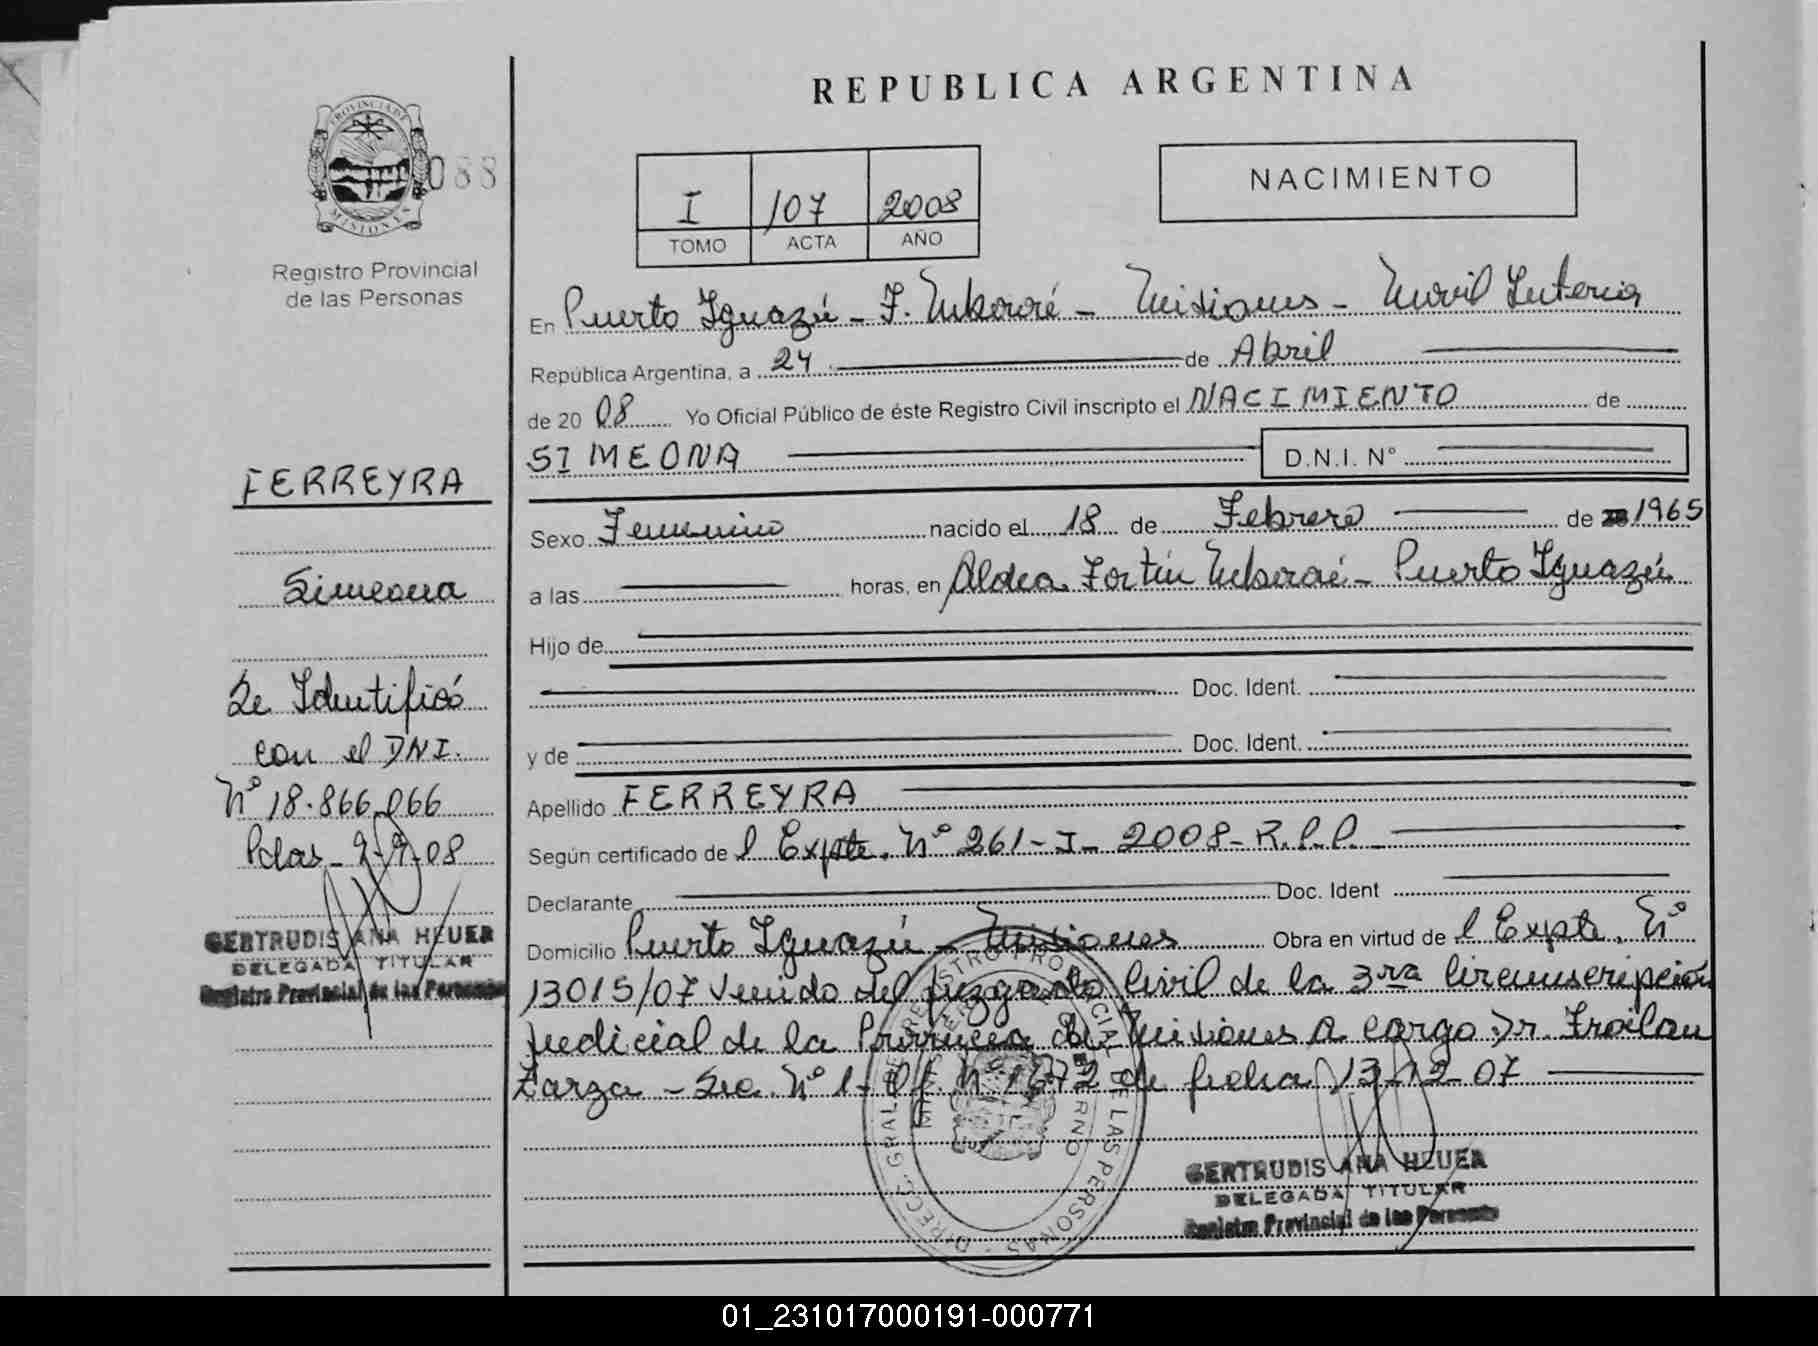 REPUBLICA ARGENTINA
PROVINCIA DE
MISIONES
088
Registro Provincial
de las Personas
I 107 2008
TOMO ACTA AÑO
NACIMIENTO
FERREYRA
Simeona
Se Identificó
con el DNI.
Nº 18.866.066
Pdas - 9-9-08
GERTRUDIS ANA HEUER
DELEGADA TITULAR
Registro Provincial de las Personas
En Puerto Iguazú - F. Mbororé - Misiones - Movil
República Argentina, a 24 de Abril
de 20 08 Yo Oficial Público de éste Registro Civil inscripto el NACIMIENTO de
SIMEONA D.N.I. N°
Sexo Femenino nacido el 18 de Febrero de 1965
a las horas, en Aldea Fortín Mbororé - Puerto Iguazú
Hijo de
Doc. Ident.
y de Doc. Ident.
Apellido FERREYRA
Según certificado de l Expte. Nº 261-I-2008-R.P.P.
Declarante Doc. Ident
Domicilio Puerto Iguazú - Misiones Obra en virtud de l Expte. Nº
13015/07 Venido del Juzgado Civil de la 3ra Circunscripción
Judicial de la Provincia de Misiones a cargo Dr. Froilan
Zarza - Sec. Nº 1 - Of. Nº de fecha 13-12-07
DIRECC. GRAL. DE REGISTRO PROVINCIAL DE LAS PERSONAS
GERTRUDIS ANA HEUER
DELEGADA TITULAR
Registro Provincial de las Personas
01_231017000191-000771